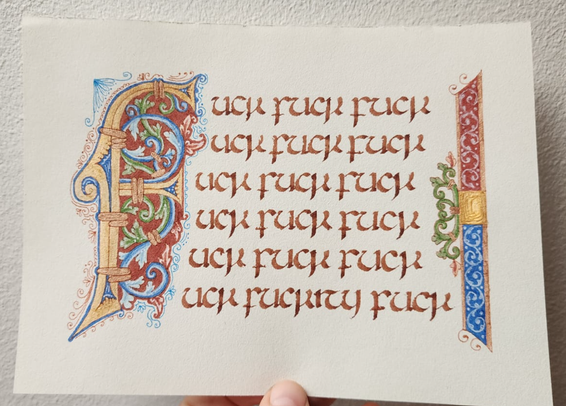 Fuck fuck fuck
uck fuck fuck
uck fuck fuck
uck fuck fuck
uck fuck fuck
uck fuckity fuck